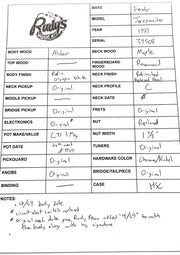 Rudy's
MAKE Fender
MODEL Jazzmaster
YEAR 1959
SERIAL
BODY WOOD Alder
NECK WOOD Maple
TOP WOOD —
FINGERBOARD WOOD Rosewood
BODY FINISH Refin Olympic White
NECK FINISH Refinished
NECK PICKUP Original
NECK PROFILE C
MIDDLE PICKUP —
NECK DATE
BRIDGE PICKUP Original
FRETS Original
ELECTRONICS Original
NUT Replaced
POT MAKE/VALUE CTS 1 Meg
NUT WIDTH
POT DATE
TUNERS Original
PICKGUARD Original
HARDWARE COLOR Chrome/Nickel
KNOBS Original
BRIDGE/TAILPIECE Original
BINDING —
CASE HSC
NOTES:
4/59 body date
circuit slot switch replaced
original neck date gone, Rudy Pensa added "4/59" to match
the body along with his signature